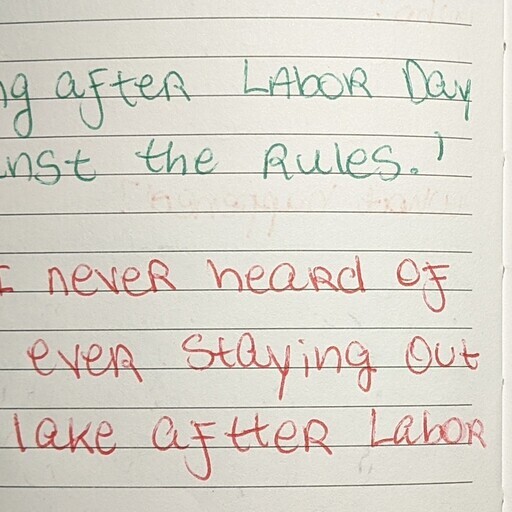 ng after Labor Day
nst the Rules.'
I never heard of
ever staying out
lake aftter Labor